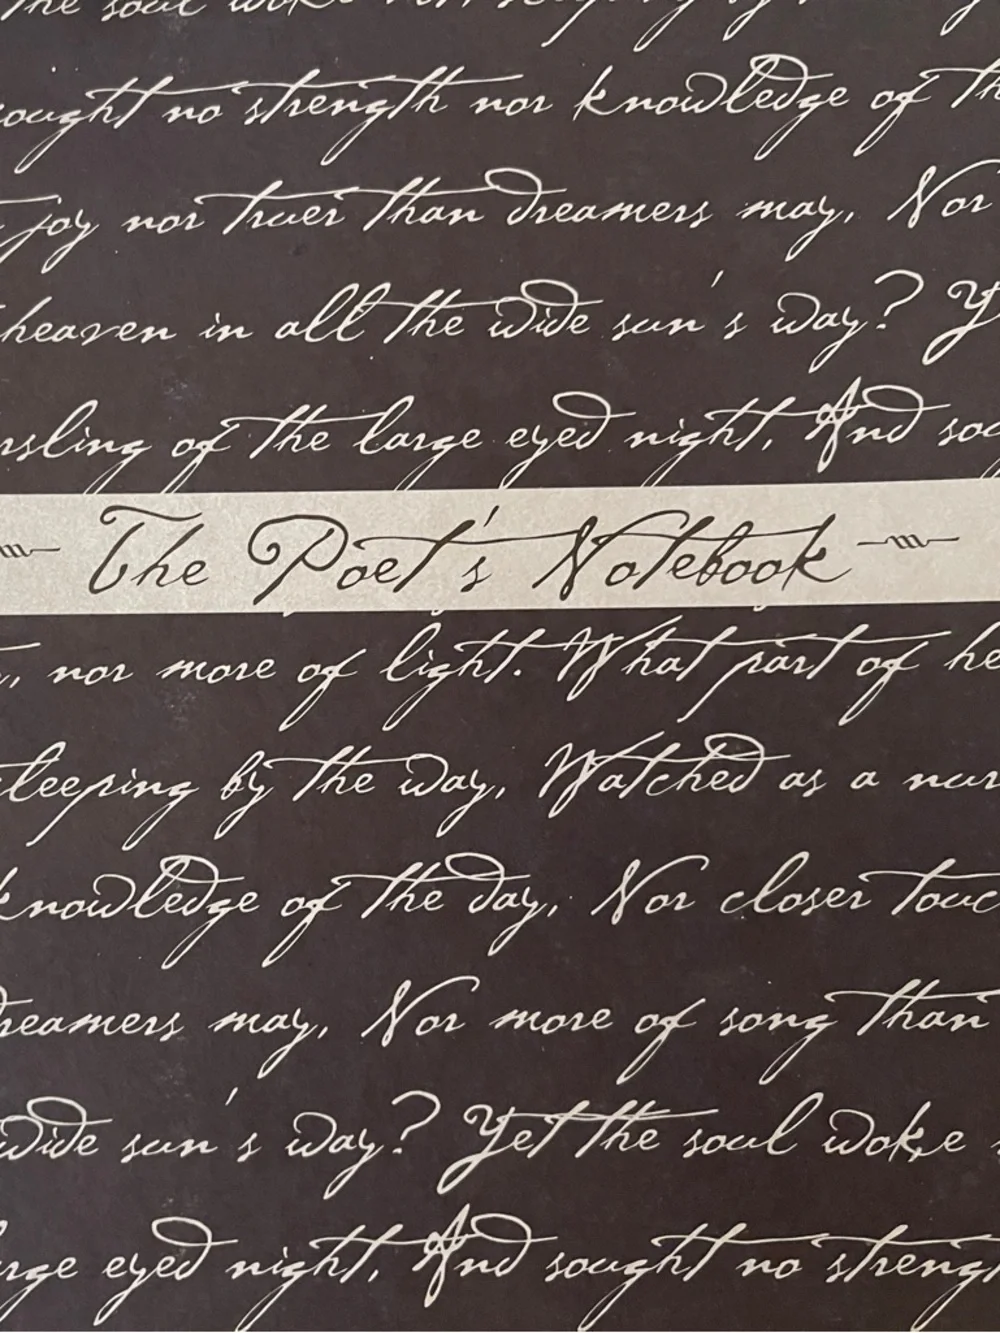 The soul woke
ought no strength nor knowledge of th
joy nor truer than dreamers may, Nor
heaven in all the wide sun's way? Y
rsling of the large eyed night, And sou
The Poet's Notebook
, nor more of light. What part of he
leeping by the way, Watched as a nur
knowledge of the day, Nor closer touc
reamers may, Nor more of song than
wide sun's way? Yet the soul woke
rge eyed night, And sought no streng